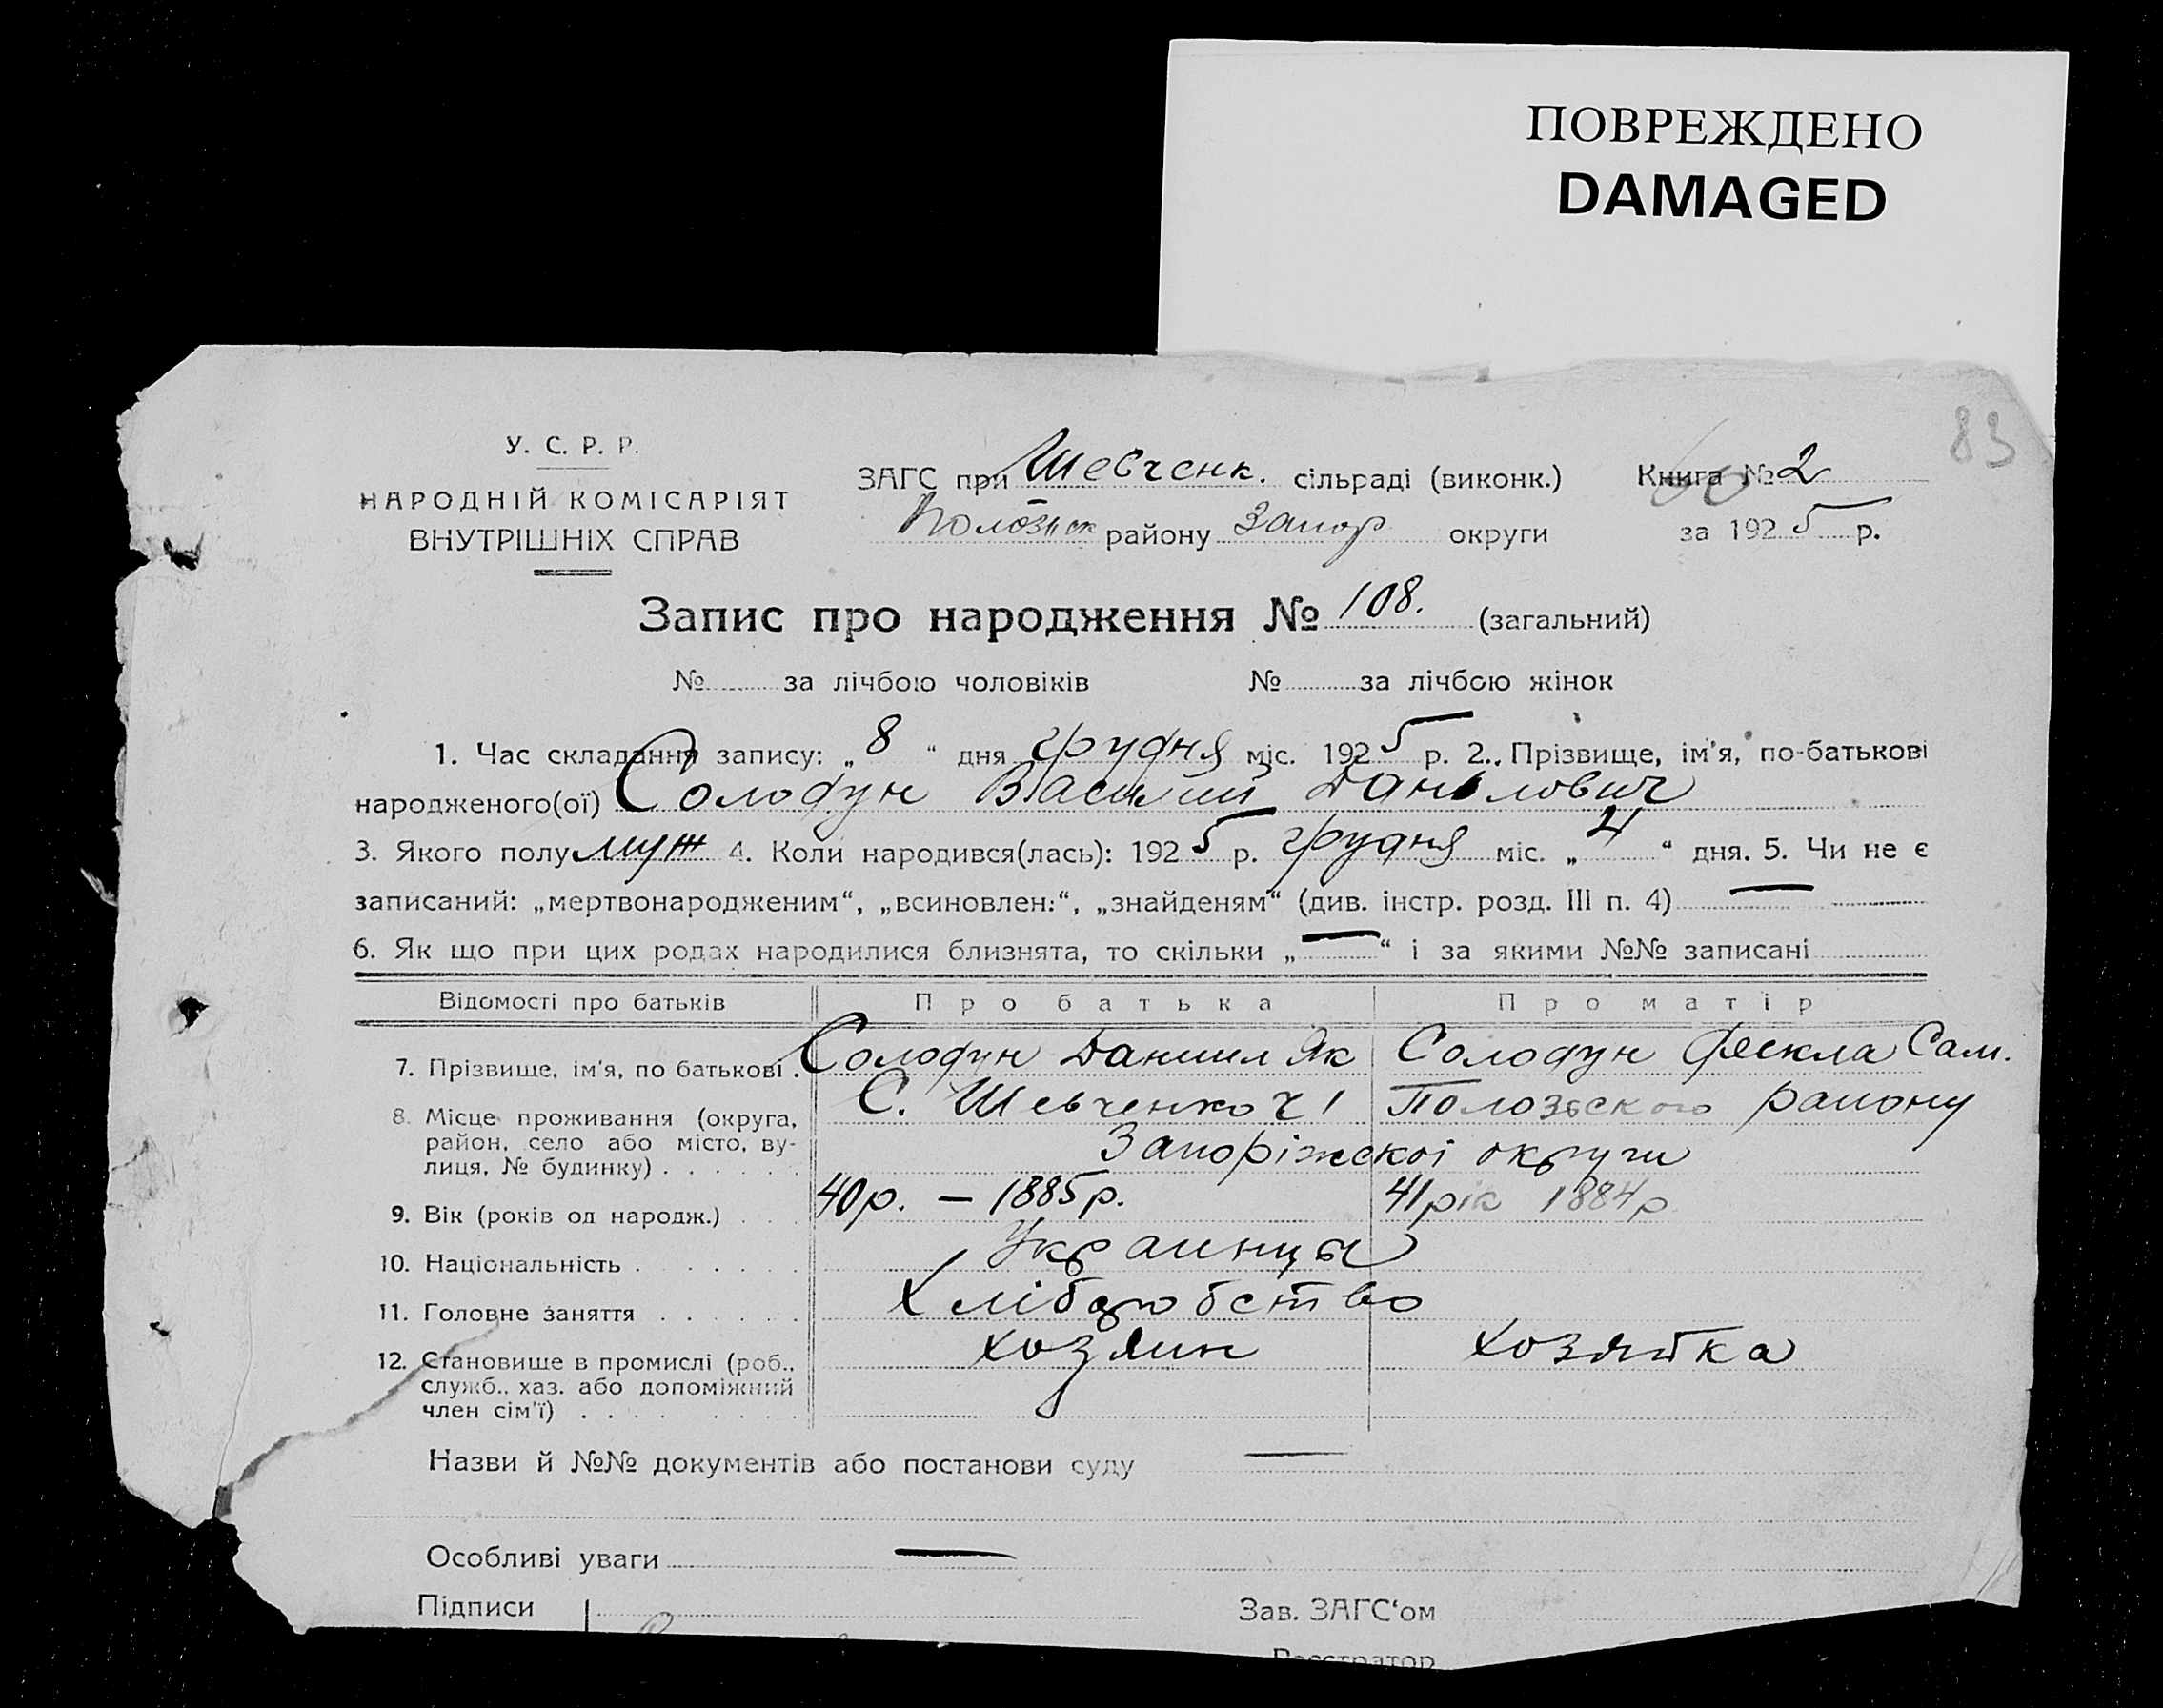 ПОВРЕЖДЕНО
DAMAGED
83
У. С. Р. Р.
НАРОДНІЙ КОМІСАРІЯТ
ВНУТРІШНІХ СПРАВ
ЗАГС при Шевченк. сільраді (виконк.)
Полозьк району Запор округи
Книга № 2
за 1925 р.
Запис про народження № 108. (загальний)
№ за лічбою чоловіків № за лічбою жінок
1. Час складання запису: „8“ дня грудня міс. 1925 р. 2. Прізвище, ім'я, по-батькові
народженого(ої) Солодун Василий Данилович
3. Якого полу муж 4. Коли народився(лась): 1925 р. грудня міс. „4“ дня. 5. Чи не є
записаний: „мертвонародженим“, „всиновлен:“, „знайденям“ (див. інстр. розд. III п. 4) —
6. Як що при цих родах народилися близнята, то скільки „—“ і за якими №№ записані
Відомості про батьків Про батька Про матір
7. Прізвище, ім'я, по батькові . Солодун Даниил Як Солодун Фекла Сам.
8. Місце проживання (округа, С. Шевченко ч1 Полозьского району
район, село або місто, ву-
лиця, № будинку) . . . . . . Запоріжскоі округи
9. Вік (років од народж.) . . . 40р. — 1885р. 41 рік 1884р
10. Національність . . . . . . Украинцы
11. Головне заняття . . . . . . Хліборобство
12. Становище в промислі (роб., хозяин хозяйка
служб., хаз. або допоміжний
член сім'ї) . . . . . . . .
Назви й №№ документів або постанови суду —
Особливі уваги —
Підписи Зав. ЗАГС‘ом
Реєстратор